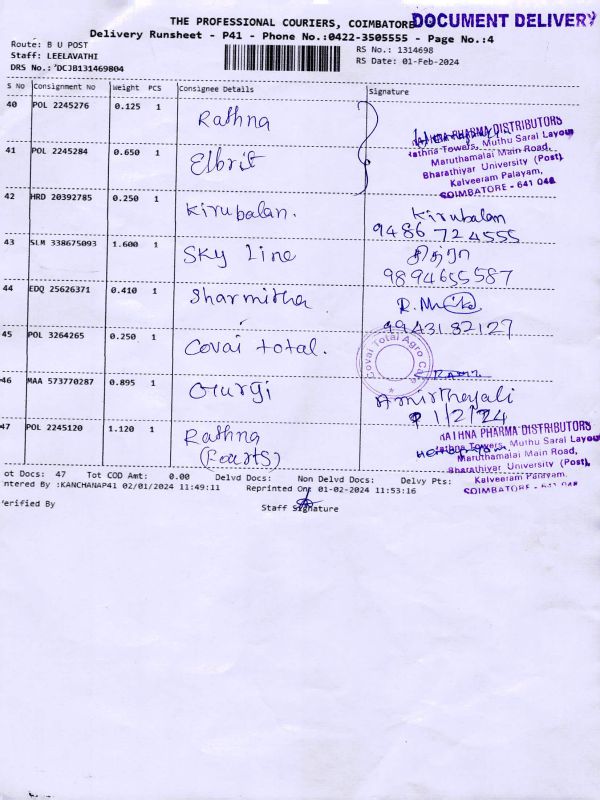 THE PROFESSIONAL COURIERS, COIMBATORE
DOCUMENT DELIVERY
Delivery Runsheet - P41 - Phone No.:0422-3505555 - Page No.:4
Route: B U POST
RS No.: 1314698
Staff: LEELAVATHI
RS Date: 01-Feb-2024
DRS No.: DCJB131469804
S No Consignment No Weight PCS Consignee Details Signature
40 POL 2245276 0.125 1 Rathna
RATHNA PHARMA DISTRIBUTORS
Rathna Towers, Muthu Sarai Layou
Maruthamalai Main Road,
Bharathiyar University (Post),
Kalveeram Palayam,
COIMBATORE - 641 046
41 POL 2245284 0.650 1 Elbrit
42 HRD 20392785 0.250 1 Kirubalan. Kirubalan
9486 724555
43 SLM 338675093 1.600 1 Sky Line சித்ரா
9894655587
44 EDQ 25626371 0.410 1 Sharmitha
9943182127
45 POL 3264265 0.250 1 Covai total.
Covai Total Agro Care
46 MAA 573770287 0.895 1 Gurgi Amirthayali
1/2/24
47 POL 2245120 1.120 1 Rathna
RATHNA PHARMA DISTRIBUTORS
Rathna Towers, Muthu Sarai Layou
Maruthamalai Main Road,
Bharathiyar University (Post),
Kalveeram Palayam,
COIMBATORE - 641 046
ot Docs: 47 Tot COD Amt: 0.00 Delvd Docs: Non Delvd Docs: Delvy Pts:
ntered By :KANCHANAP41 02/01/2024 11:49:11 Reprinted On: 01-02-2024 11:53:16
erified By Staff Signature